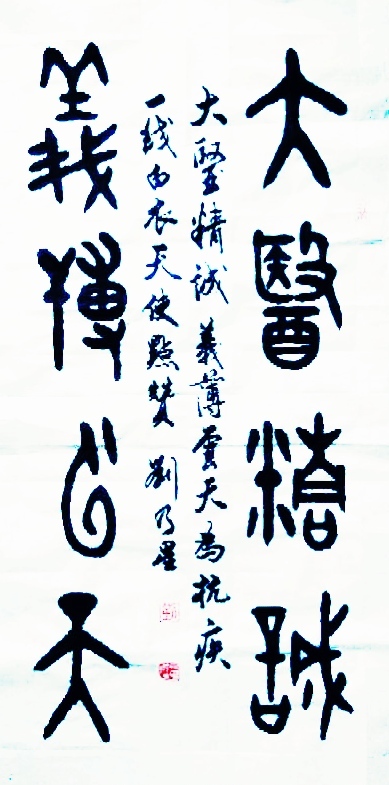 大醫精誠
義搏云天
大毉精誠 義薄雲天為抗疫
一綫白衣天使點贊 劉乃星